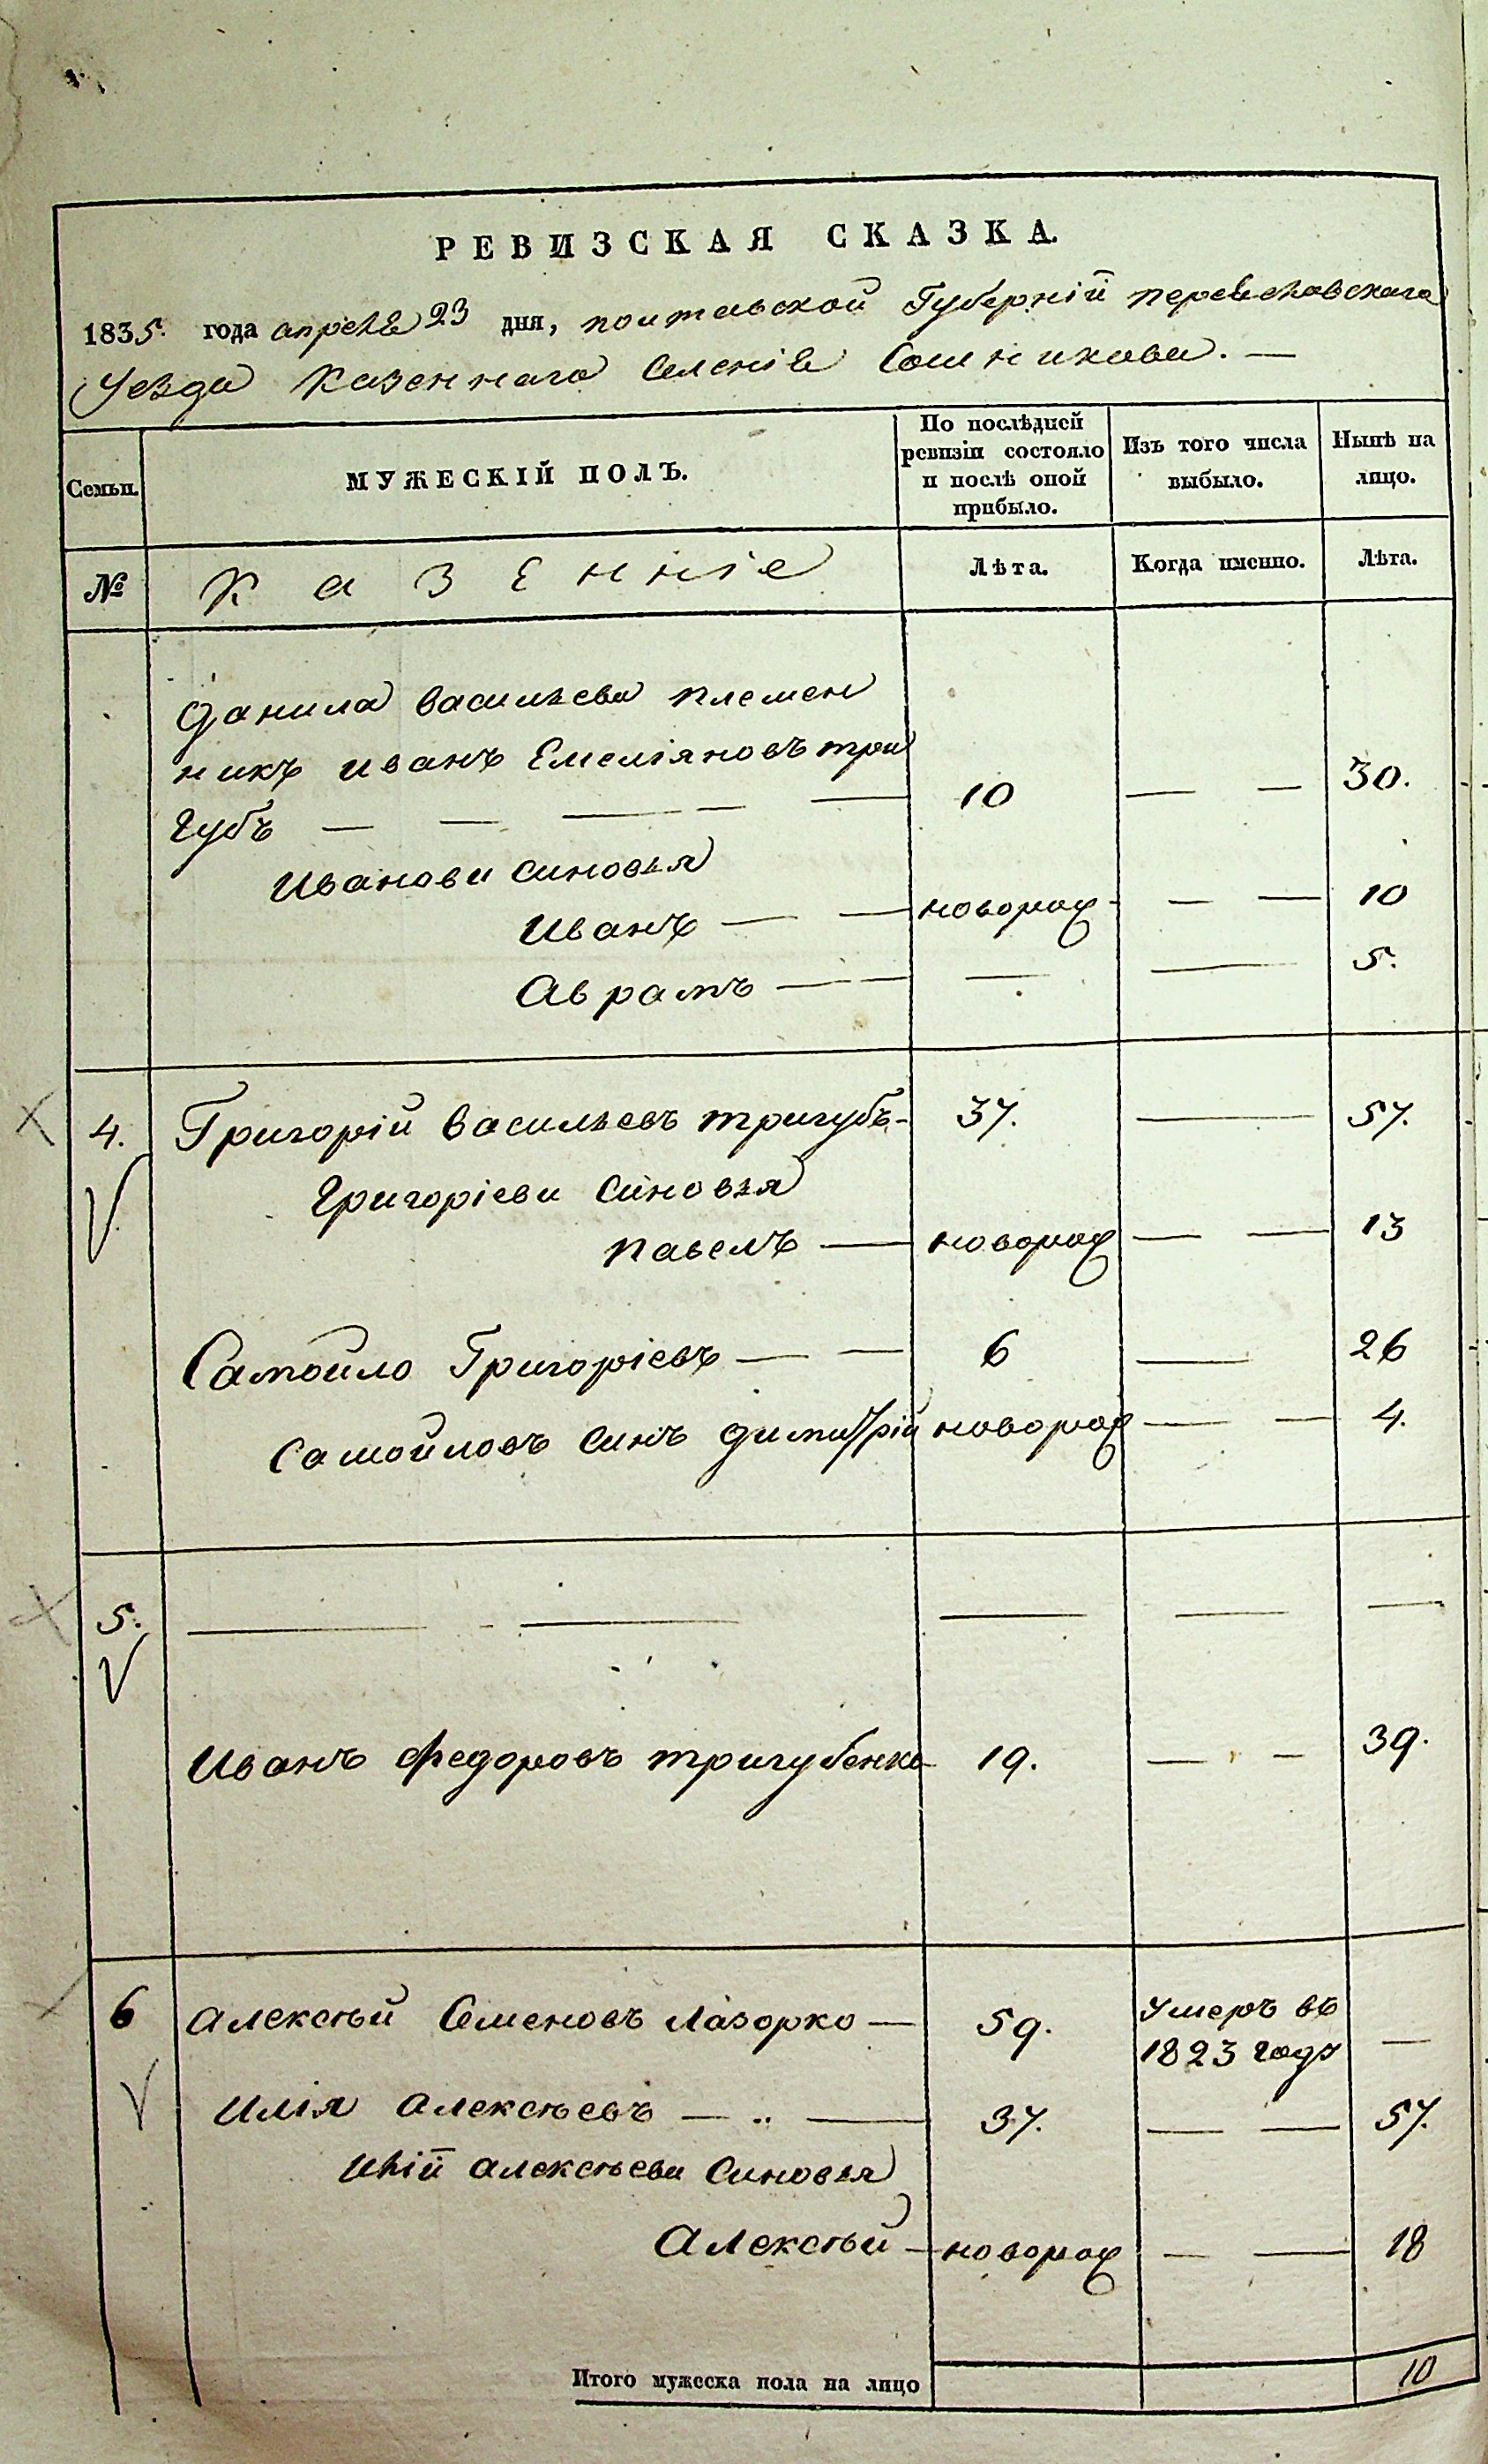 РЕВИЗСКАЯ СКАЗКА.
1835. года апреля 23 дня, полтавской Губернiй переяславскаго
Уезда Казеннаго Селенiя Сошникова. —
Семьи.
МУЖЕСКІЙ ПОЛЪ.
По послѣдней ревизіи состояло и послѣ оной прибыло.
Изъ того числа выбыло.
Нынѣ на лицо.
№
Казеннiе
Лѣта.
Когда именно.
Лѣта.
Данила васильева племен
никъ иванъ Емелiяновъ три
губъ — — — — — 10 — — 30.
Иванови синовья
Иванъ — — новорож — — 10
Аврамъ — — — — 5.
4. Григорiй васильевъ тригубъ - 37. — 57.
Григорiеви синовья
павелъ — новорож — — 13
Самойло Григорiевъ — — 6 — 26
самойловъ синъ димитрiй новорож — — 4.
5. — - — — — —
Иванъ федоровъ тригубенко 19. — — 39.
6 Алексѣй Семеновъ Лазорко — 59. Умеръ въ 1823 году —
Илiя Алексѣевъ — — 37. — — 57.
Илiй алексѣеви синовья
Алексѣй — новорож — — 18
Итого мужеска пола на лицо 10